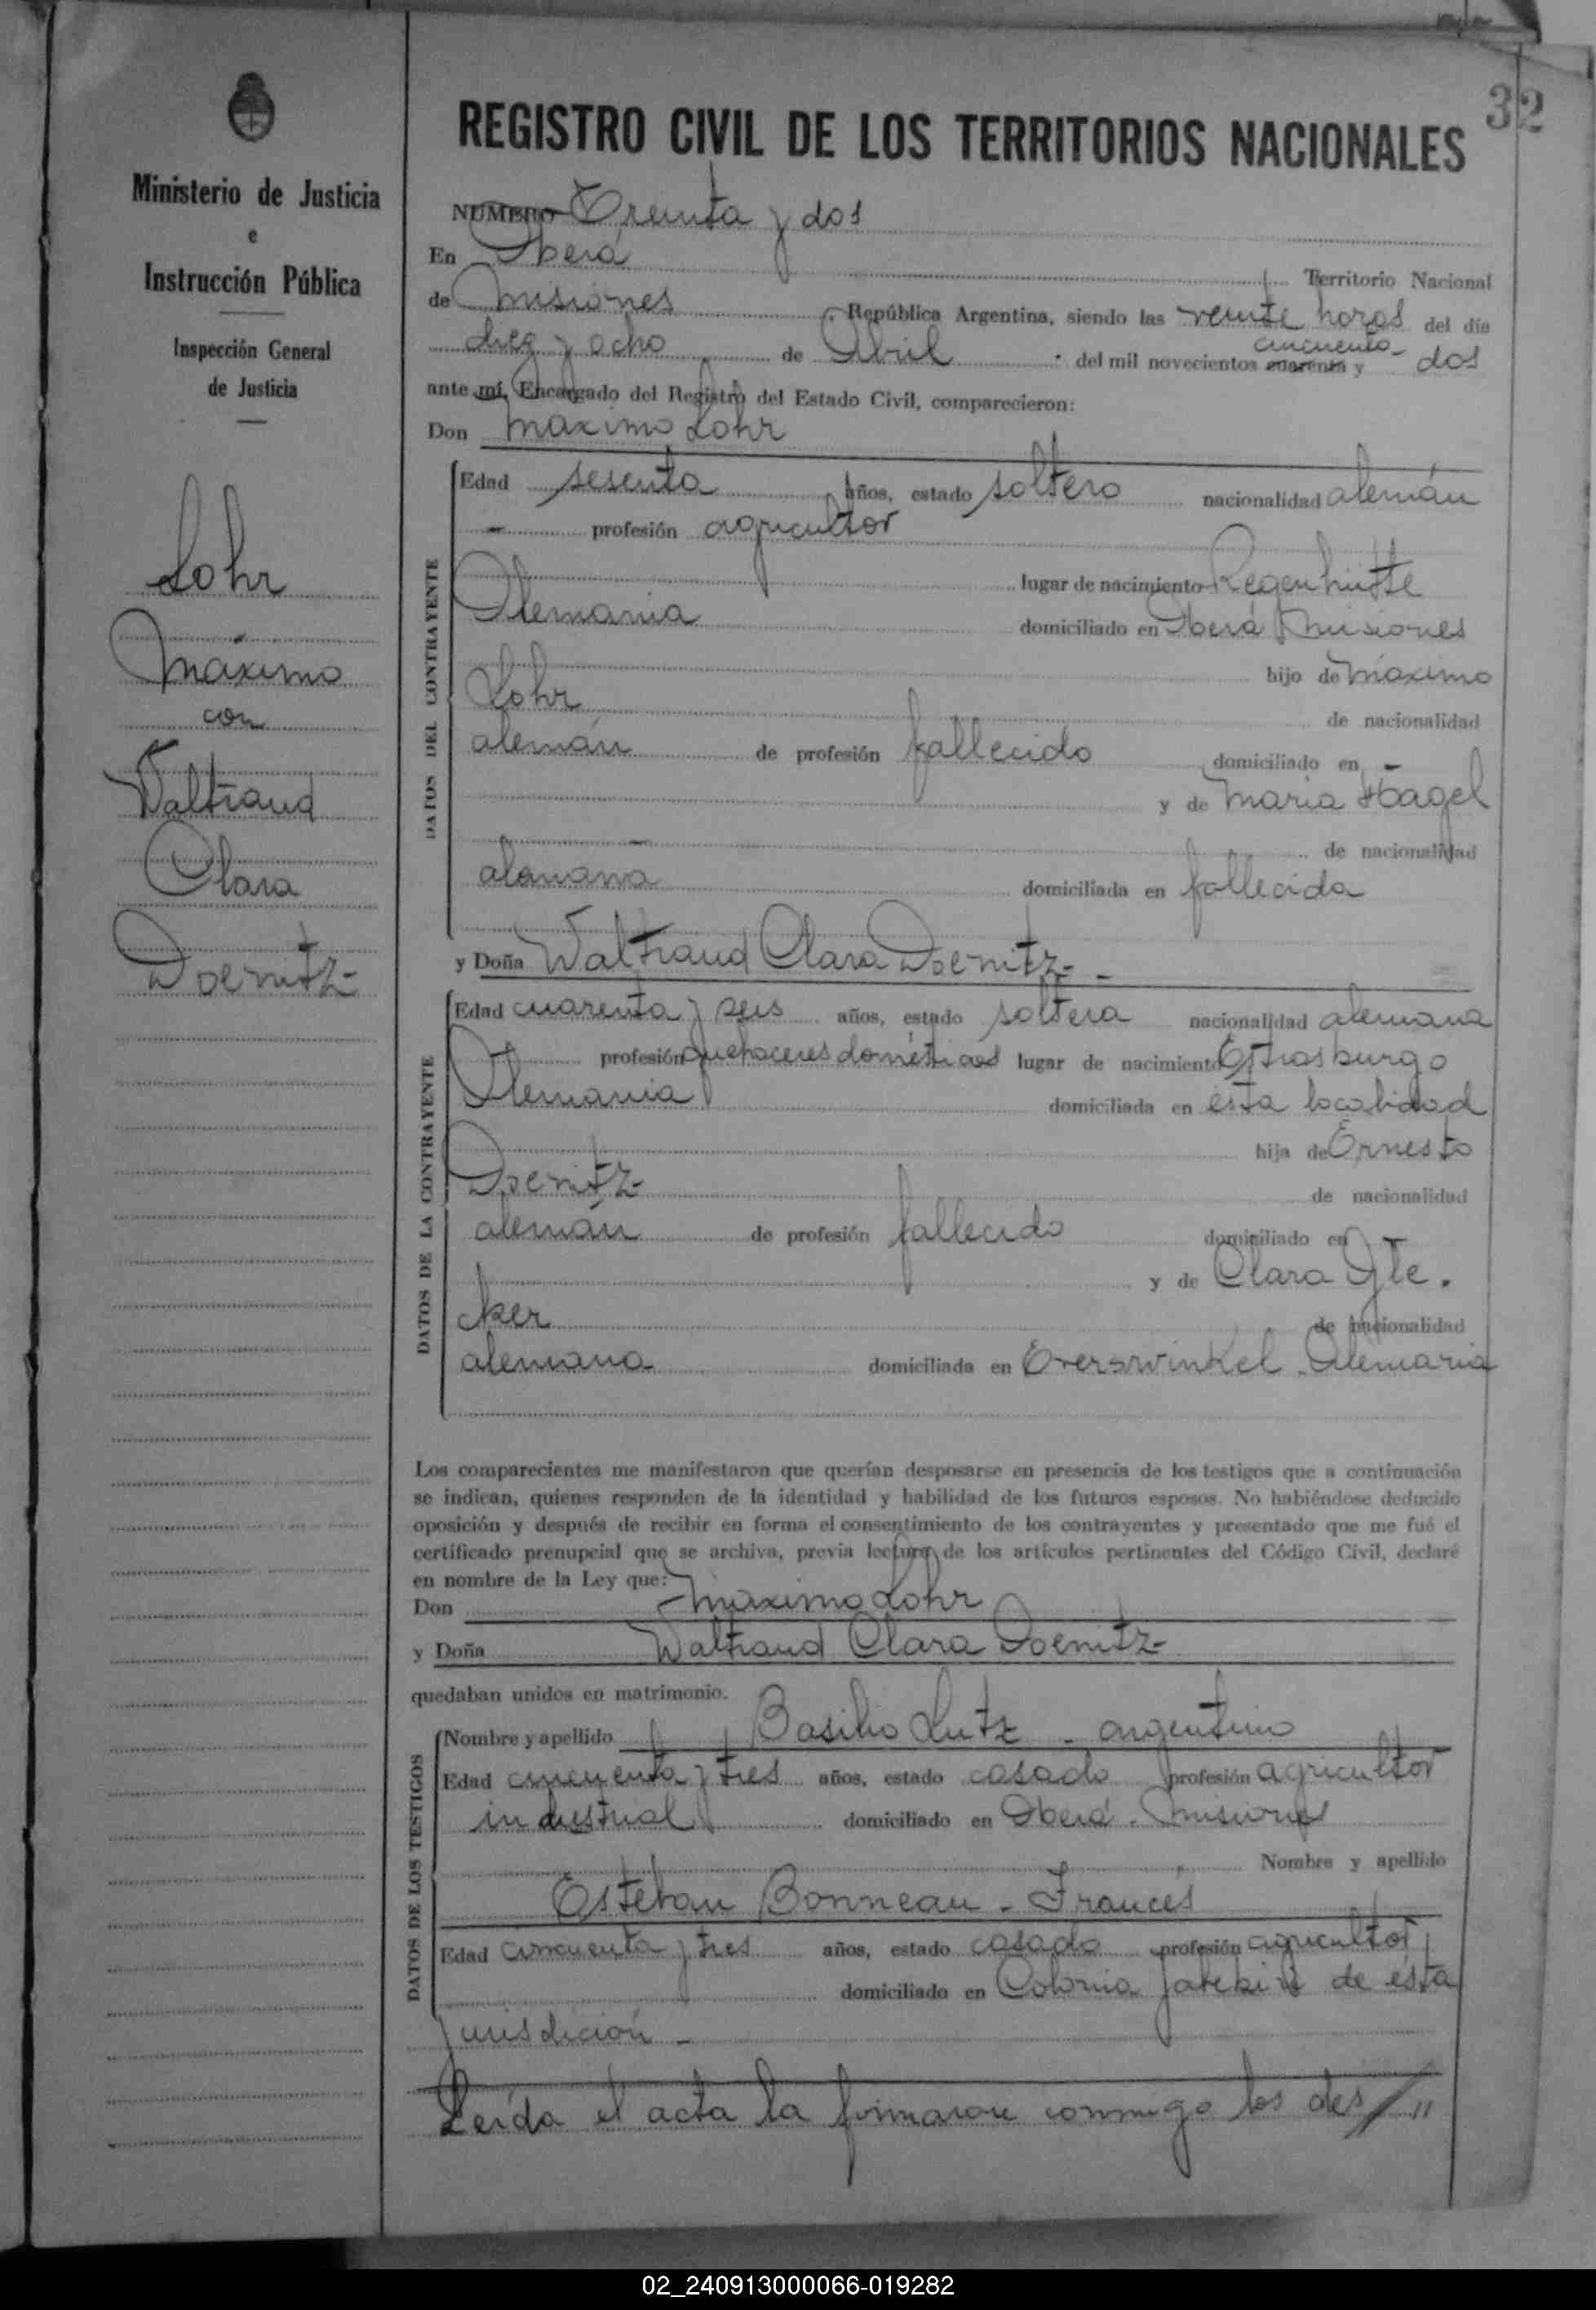 32
REGISTRO CIVIL DE LOS TERRITORIOS NACIONALES
Ministerio de Justicia
e
Instrucción Pública
Inspección General
de Justicia
Lohr
Máximo
con
Waltraud
Clara
Doenitz-
NUMERO Treinta y dos
En Oberá Territorio Nacional
de Misiones, República Argentina, siendo las veinte horas del día
diez y ocho de Abril del mil novecientos cuarenta y cincuenta dos
ante mí, Encargado del Registro del Estado Civil, comparecieron:
Don Máximo Lohr
DATOS DEL CONTRAYENTE
Edad sesenta años, estado soltero nacionalidad alemán
- profesión agricultor
lugar de nacimiento Regenhütte
Alemania domiciliado en Oberá Misiones
hijo de Máximo
Lohr de nacionalidad
alemán de profesión fallecido domiciliado en -
y de Maria Hagel
- de nacionalidad
alemana domiciliada en fallecida
y Doña Waltraud Clara Doenitz- -
DATOS DE LA CONTRAYENTE
Edad cuarenta y seis años, estado soltera nacionalidad alemana
profesión quehaceres domésticos lugar de nacimiento Estrasburgo
Alemania domiciliada en esta localidad
hija de Ernesto
Doenitz- de nacionalidad
alemán de profesión fallecido domiciliado en -
y de Clara
cker de nacionalidad
alemana domiciliada en Everswinkel - Alemania
Los comparecientes me manifestaron que querían desposarse en presencia de los testigos que a continuación
se indican, quienes responden de la identidad y habilidad de los futuros esposos. No habiéndose deducido
oposición y después de recibir en forma el consentimiento de los contrayentes y presentado que me fué el
certificado prenupcial que se archiva, previa lectura de los artículos pertinentes del Código Civil, declaré
en nombre de la Ley que:
Don Máximo Lohr
y Doña Waltraud Clara Doenitz-
quedaban unidos en matrimonio.
DATOS DE LOS TESTIGOS
Nombre y apellido Basilio Lutz - argentino
Edad cincuenta y tres años, estado casado profesión agricultor
industrial domiciliado en Oberá - Misiones
Nombre y apellido
Esteban Bonneau - Francés
Edad cincuenta y tres años, estado casado profesión agricultor
domiciliado en Colonia de ésta
jurisdición -
Leída el acta la firmaron conmigo los des//
02_240913000066-019282